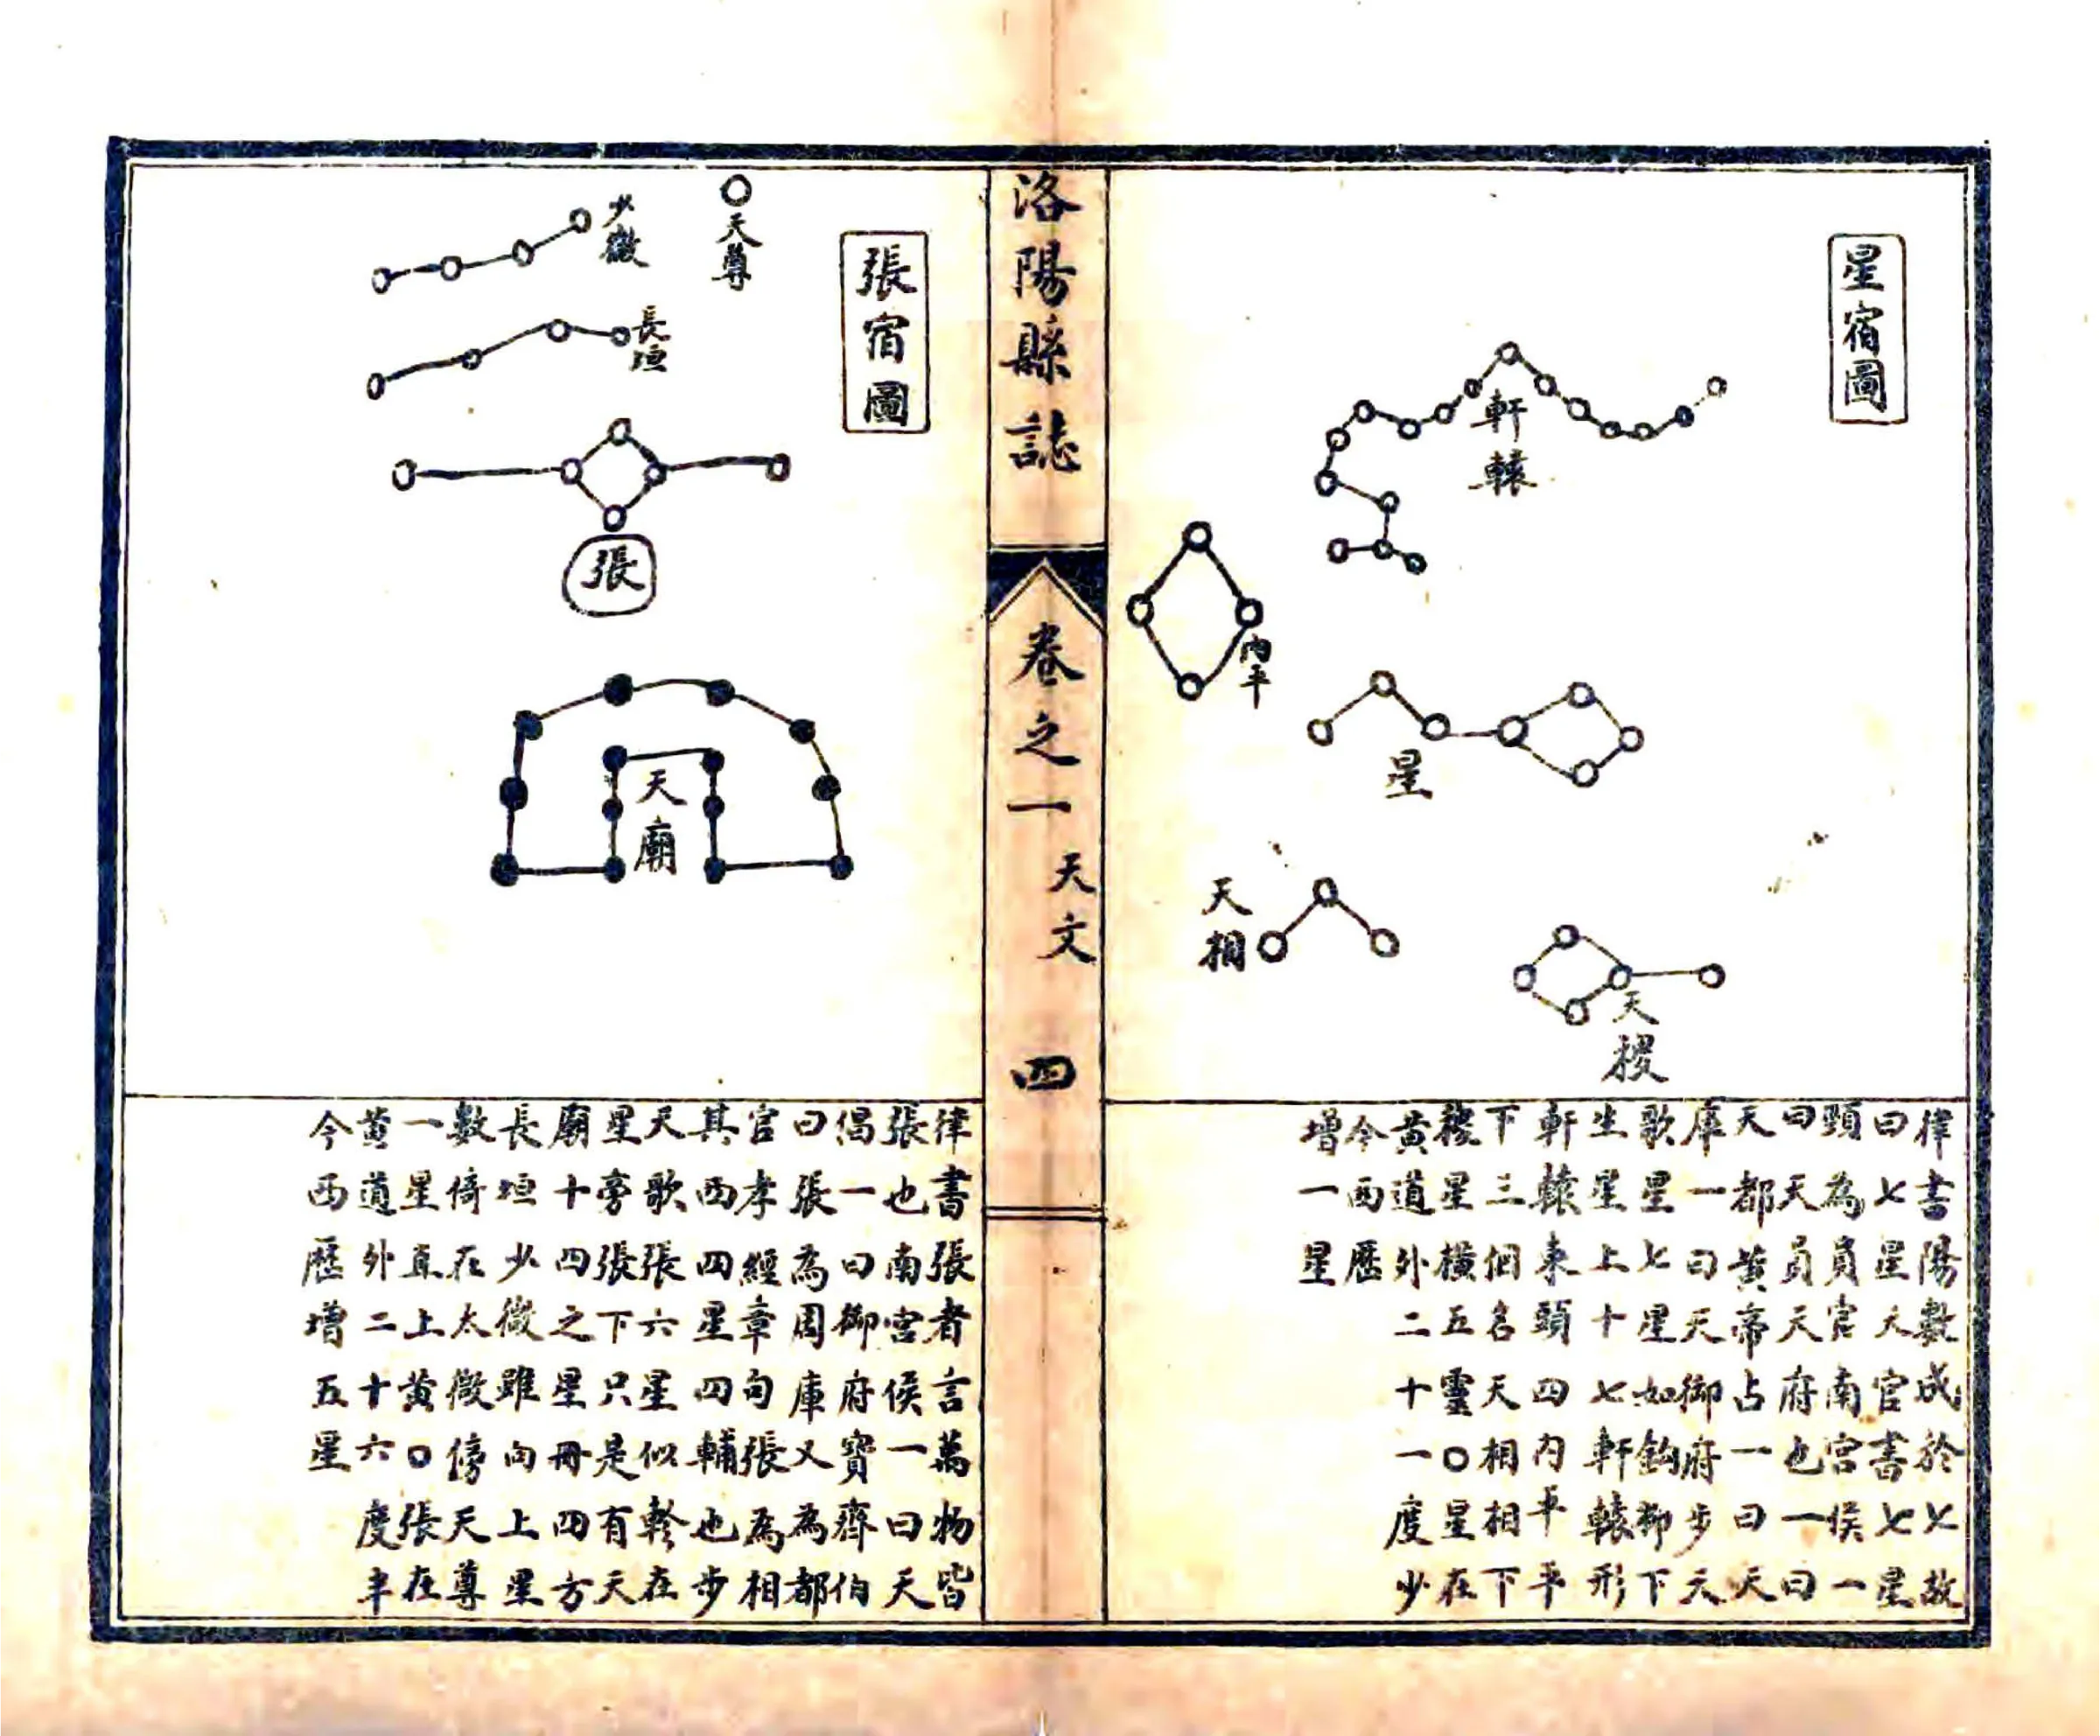 星宿圖
軒轅
內平
星
天相
天稷
律書陽數成於七七故
曰七星天官書七星
頸為員官南宮侯一
曰天員天府也一曰
天都黃帝占一曰天
庫一曰天御府步天
歌星七星如鈎柳下
生星上十七軒轅形
軒轅東頭四內平平
下三個名天相相下
稷星橫五靈○星在
黃道外二十一度少
今西歷
增一星
洛陽縣誌
卷之一
天文
四
張宿圖
天尊
少微
長垣
張
天廟
律書張者言萬物皆
張也南宮侯一曰天
倡一曰御府寶齊伯
曰張為周庫又為都
官孝經章句張為相
其西四星四輔也步
天歌張六星似軫在
星旁張下只是有天
廟十四之星冊四方
長垣少微雖向上星
數倚在太微傍天尊
一星直上黃○張在
黃道外二十六度半
今西歷增五星